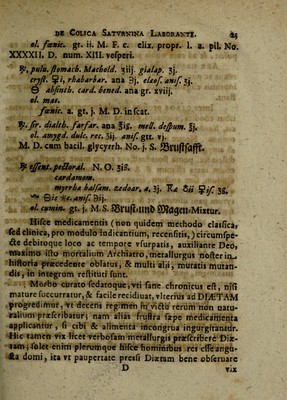 DE COLICA SATVRNINA LABORANTE. 25
ol. fœnic. gr. ii. M. F. c. elix. propr. l. a. pil. No.
XXXXII. D. num. XIII. vesperi.
℞. pulu. stomach. Machold. ʒiij. gialap. ʒj.
cryst. ♀i, rhabarbar. ana ℈j. elæos. anis. ʒj.
🜔 absinth. card. bened. ana gr. xviij.
ol. mac.
fœnic. a. gt. j. M. D. in scat.
℞. sir. dialth. farfar. ana ℥iß. mell. despum. ℥j.
ol. amygd. dulc. rec. ℥ij. anis. gtt. vj.
M. D. cum bacil. glycyrrh. No. j. S. Brustsafft.
℞ essent. pectoral. N. O. ʒiß.
cardamom.
myrrha balsam. zedoar. a. ʒj.
anis. ℈ij.
ol. cumin. gt. j. M. S. Brust-und Magen-Mixtur.
Hisce medicamentis (non quidem methodo clasica,
sed clinica, pro modulo indicantium, recensitis,) circumspe-
cte debitoque loco ac tempore vsurpatis, auxiliante Deo,
maximo isto mortalium Archiatro, metallurgus noster in
historia præcedente oblatus, & multi alii, mutatis mutan-
dis, in integrum restituti sunt.
Morbo curato sedatoque, vti sane chronicus est, nisi
mature succurratur, & facile recidiuat, vlterius ad DIÆTAM
progredimur, vt decens regimen in victu rerum non natu-
ralium præscribatur; nam alias frustra sæpe medicamenta
applicantur, si cibi & alimenta incongrua ingurgitantur.
Hic tamen vix licet verbosam metallurgis præscribere Diæ-
tam; solet enim plerumque hisce hominibus res esse angu-
sta domi, ita vt paupertate pressi Diætam bene obseruare
D vix